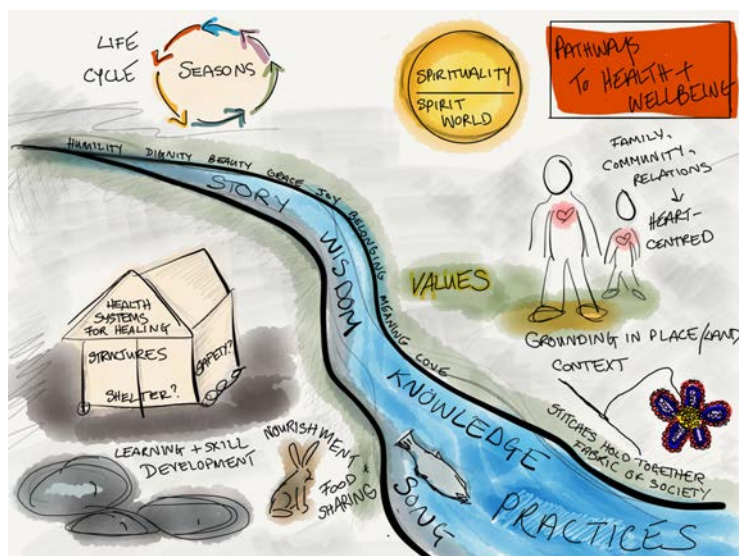 LIFE
CYCLE
SEASONS
SPIRITUALITY
SPIRIT
WORLD
PATHWAYS
TO HEALTH +
WELLBEING
HUMILITY DIGNITY BEAUTY GRACE JOY BELONGING MEANING LOVE
STORY
WISDOM
KNOWLEDGE
PRACTICES
SONG
FAMILY,
COMMUNITY,
RELATIONS
HEART-
CENTRED
VALUES
GROUNDING IN PLACE/LAND
CONTEXT
STITCHES HOLD TOGETHER
FABRIC OF SOCIETY
HEALTH
SYSTEMS
FOR HEALING
STRUCTURES
SHELTER?
SAFETY?
LEARNING + SKILL
DEVELOPMENT
NOURISHMENT
+
FOOD
SHARING